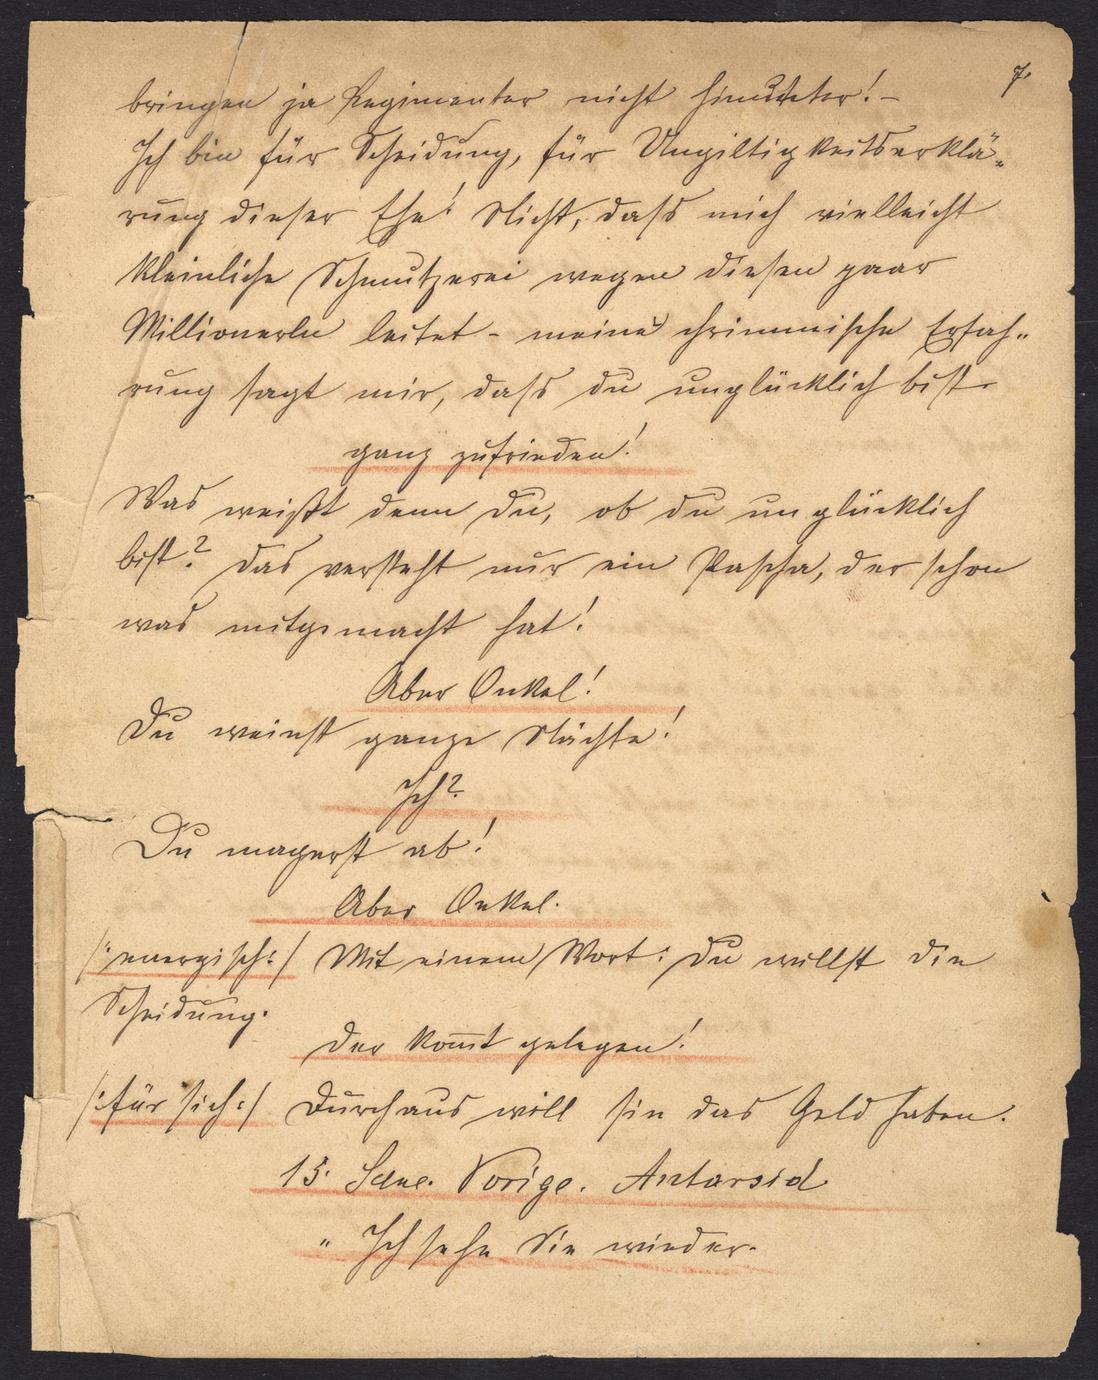 7.
bringen ja Regimenter nicht hinunter! -
Ich bin für Scheidung, für Ungiltigkeitserklä-
rung dieser Ehe! Nicht, dass mich vielleicht
kleinliche Schmutzerei wegen diesen paar
Millionerln leitet - meine chrimmische Erfah-
rung sagt mir, dass du unglücklich bist.
ganz zufrieden!
Was weißt denn Du, ob du unglücklich
bist? Das versteht nur ein Pascha, der schon
was mitgemacht hat!
Aber Onkel!
Du weinst ganze Nächte!
Ich?
Du magerst ab!
Aber Onkel.
/:energisch:/ Mit einem Wort: Du willst die
Scheidung.
Der kom̄t gelegen!
/:für sich:/ Durchaus will sie das Geld haben.
15. Scene. Vorige. Antarsid
" Ich sehe Sie wieder.